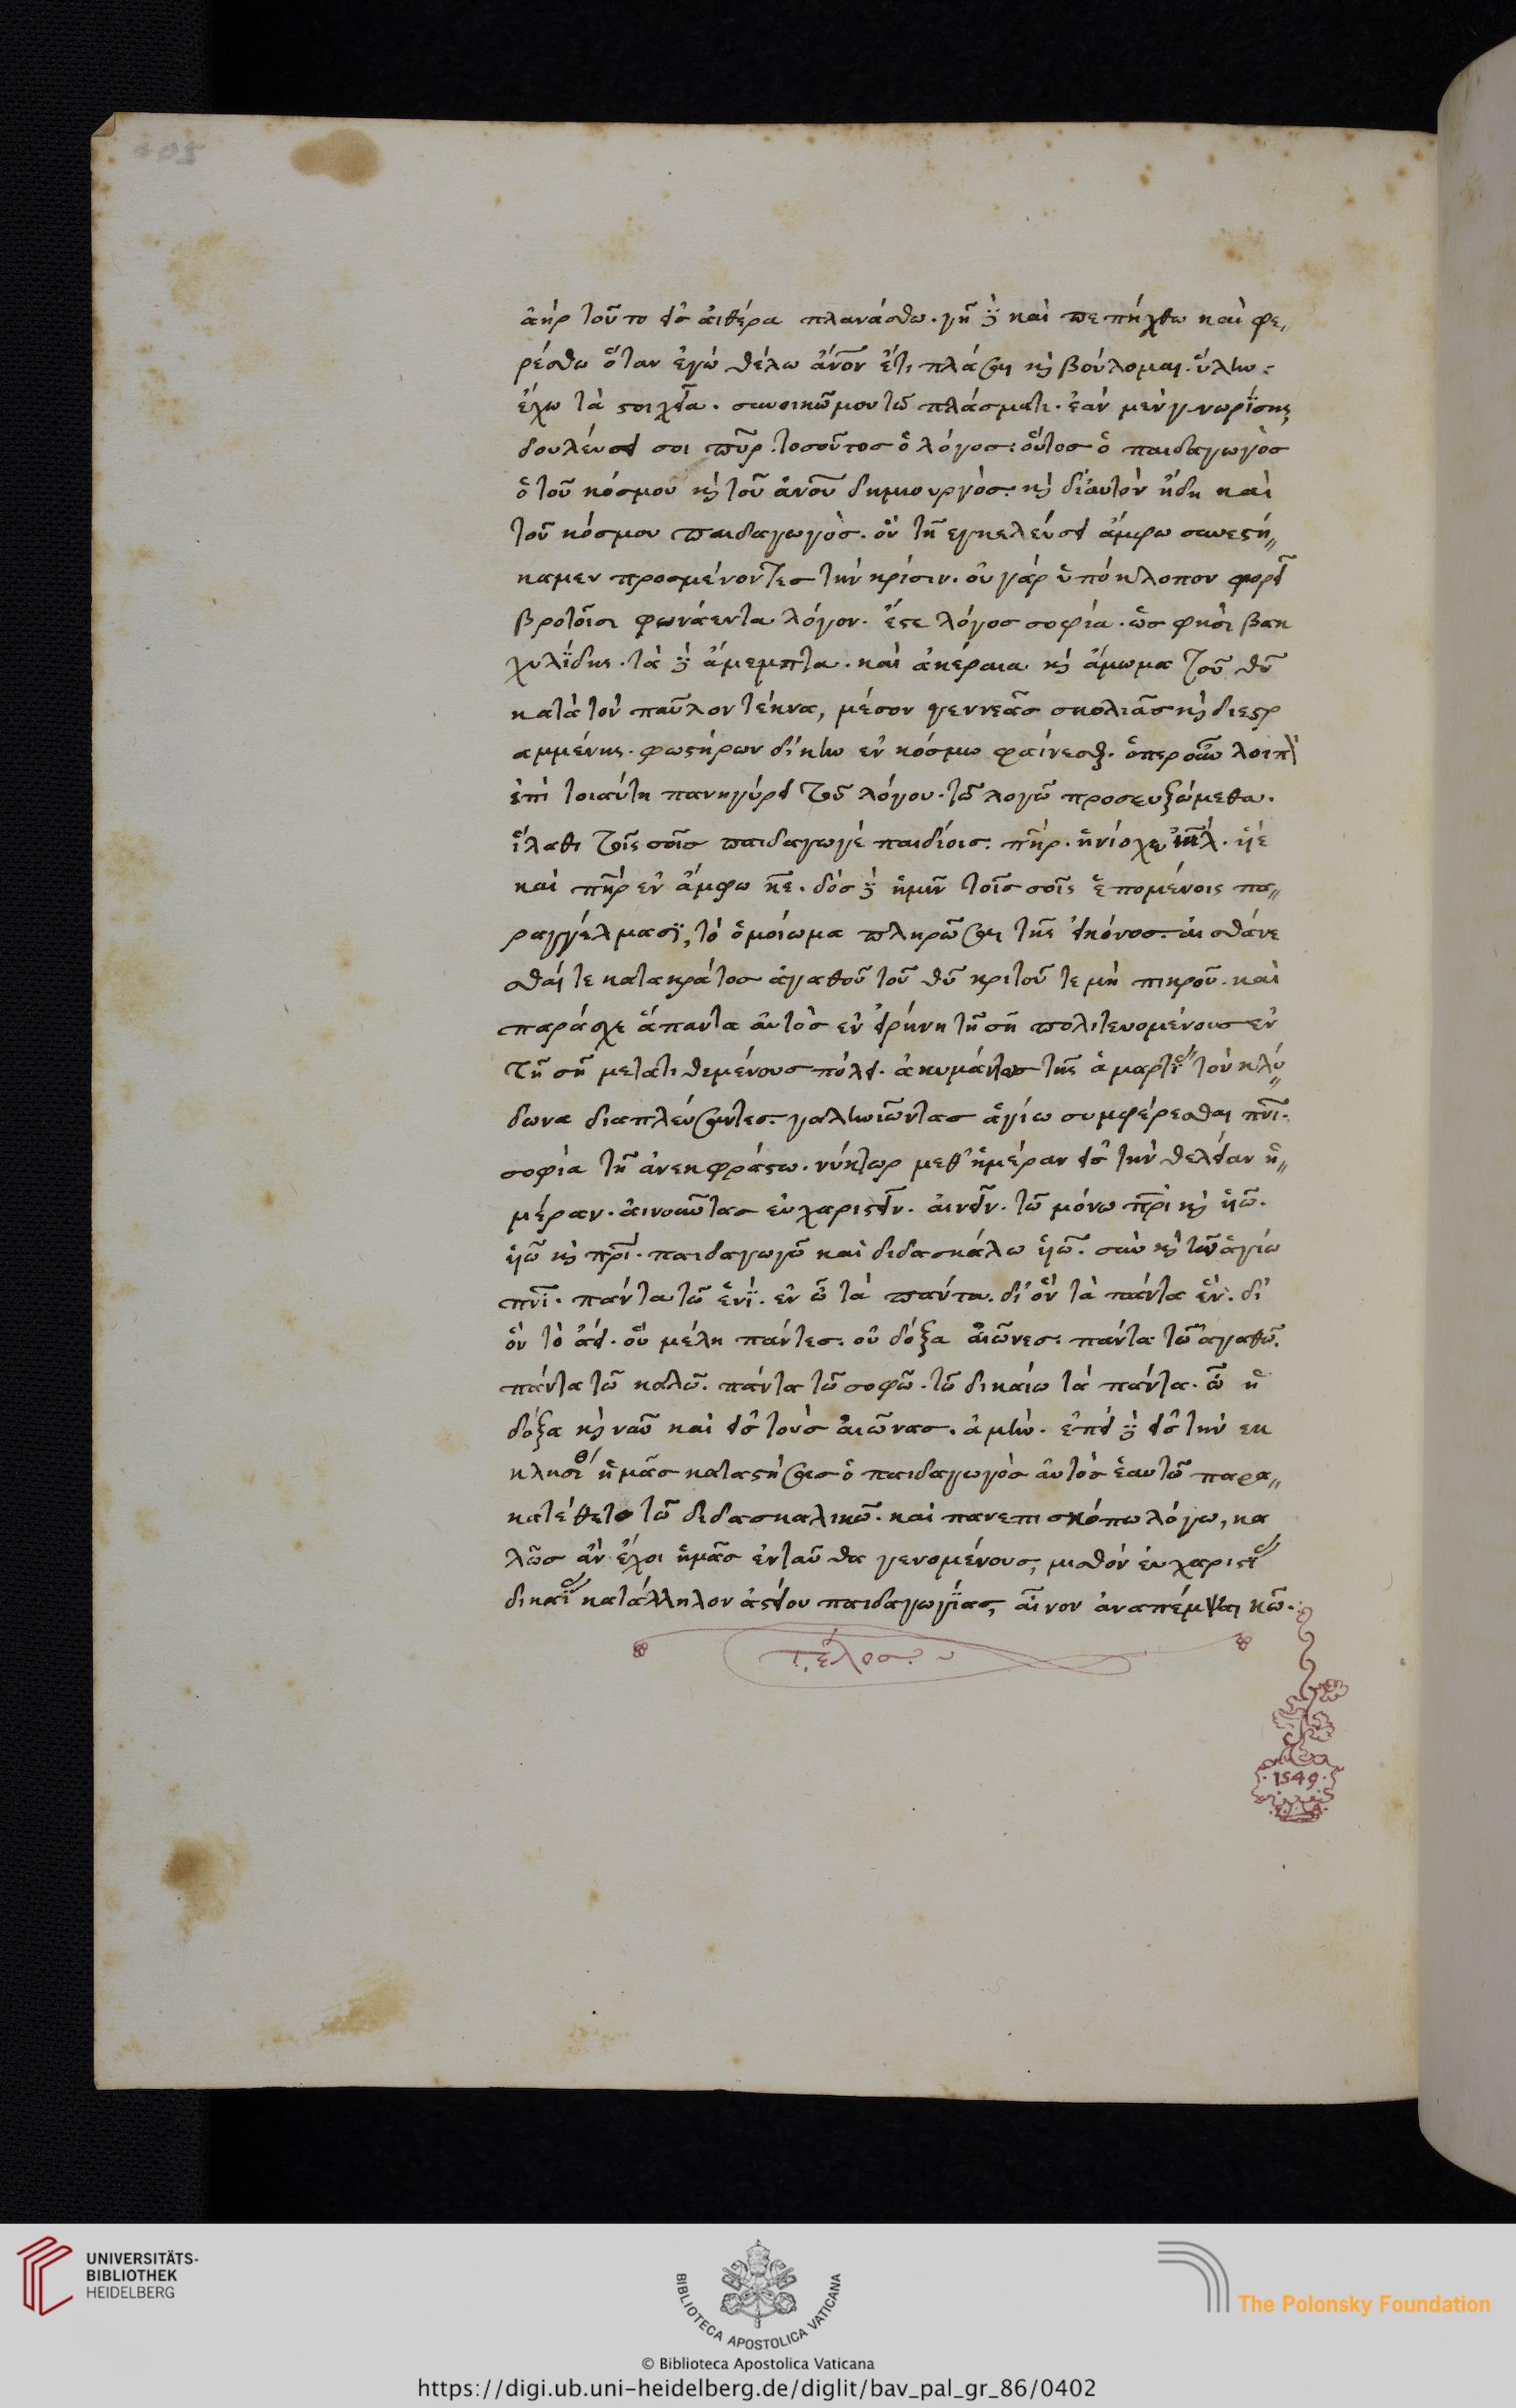 ἀήρ τοῦτο εἰς αἰθέρα πλανάσθω. γῆ δὲ καὶ πεπήχθω καὶ φε„
ρέσθω ὅταν ἐγώ θέλω ἄνον ἔτι πλάσαι κὶ βούλομαι. ὕλην:
ἔχω τὰ στοιχεῖα. συνοικῶ μου τῶ πλάσματι. ἐάν μεν γνωρΐσης
δουλεύσει σοι πῦρ. τοσοῦτος ὁ λόγος: οὗτος ὁ παιδαγωγὸς
ὁ τοῦ κόσμου κὶ τοῦ ἀνου δημιουργὸς. κὶ δι αυτὸν ἤδη καὶ
τοῦ κόσμου παιδαγωγὸς. οὗ τῆ εγκελεύσει ἄμφω συνεστή„
καμεν προσμένοντες τὴν κρίσιν. οὐ γάρ ὑπόκλοπον φορεῖ
βροτοῖσι φωνάεντα λόγον. ἔστε λόγος σοφία. ὥς φησὶ βακ
χυλΐδης. τὰ δὲ ἄμεμπτα. καὶ ἀκέραια κὶ ἄμωμα τοῦ θυ
κατὰ τὸν παῦλον τέκνα, μέσον γεννεᾶς σκολιᾶς κὶ διεστρ
αμμένης. φωστήρων δίκην εν κόσμω φαίνεσθαι. ὅπερ οὖν λοιπὸν
ἐπὶ τοιαύτη πανηγύρει τοῦ λόγου. τῶ λογῶ προσευξώμεθα.
ἵλαθι τοῖς σοῖς παιδαγωγὲ παιδίοις. πηρ. ἡνίοχε ιηλ. υἱέ
καὶ πηρ εν ἄμφω κε. δὸς δὲ ἡμιν τοῖς σοῖς ἑπομένοις πα„
ραγγέλμασϊ, τὸ ὁμοίωμα πληρῶσαι τῆς εἰκόνος. αισθάνε
σθαί τε κατακράτος ἀγαθοῦ τοῦ θυ κριτοῦ τε μὴ πικροῦ. καὶ
παράσχε ἅπαντα αὐτὸς εν εἰρήνη τῆ σῆ πολιτευομένους εν
τῆ σῆ μετατιθεμένους πόλει. ἀκυμάντως τῆς ἁμαρτίας τὸν κλύ„
δωνα διαπλεύσαντες. γαληνιῶντας ἁγίω συμφέρεσθαι πνι.
σοφία τῆ ἀνεκφράστω. νύκτωρ μεθ ἡμέραν εἰς τὴν θελείαν ἡ„
μέραν. ἀινοῦντας εὐχαριστεῖν. αἰνεῖν. τῶ μόνω πρι κὶ υἱῶ.
υἱῶ κὶ πρι. παιδαγωγῶ καὶ διδασκάλω υἱῶ. σὺν κὶ τῶ ἁγίω
πνι. πάντα τῶ ἑνϊ. εν ὧ τὰ πάντα. δι ὃν τὰ πάντα ἓν. δι
ὃν τὸ ἀεί. οὗ μέλη πάντες. οὗ δόξα αἰῶνες. πάντα τῶ ἀγαθῶ.
πάντα τῶ καλῶ. πάντα τῶ σοφῶ. τῶ δικαίω τὰ πάντα. ὧ ἡ
δόξα κὶ νῦν καὶ εἰς τοὺς αἰῶνας. ἀμήν. ἐπεὶ δὲ εἰς τὴν εκ
κλησίαν ἡμᾶς καταστήσας ὁ παιδαγωγὸς αὐτὸς ἑαυτῶ παρα„
κατέθετο τῶ διδασκαλικῶ. καὶ πανεπισκόπω λόγω, κα
λῶς ἂν ἔχοι ἡμᾶς ἐνταῦθα γενομένους, μισθόν ἐυχαριστίας
δικαίας κατάλληλον ἀστείου παιδαγωγΐας, αἶνον ἀναπέμψαι κω.
τέλος.
1549
UNIVERSITÄTS-
BIBLIOTHEK
HEIDELBERG
BIBLIOTECA APOSTOLICA VATICANA
The Polonsky Foundation
© Biblioteca Apostolica Vaticana
https://digi.ub.uni-heidelberg.de/diglit/bav_pal_gr_86/0402